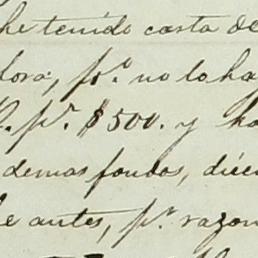 he tenido carta de
dora, pr.o no lo ha
pr. $500. y ha
demas fondos, dici
e antes, pr. razon